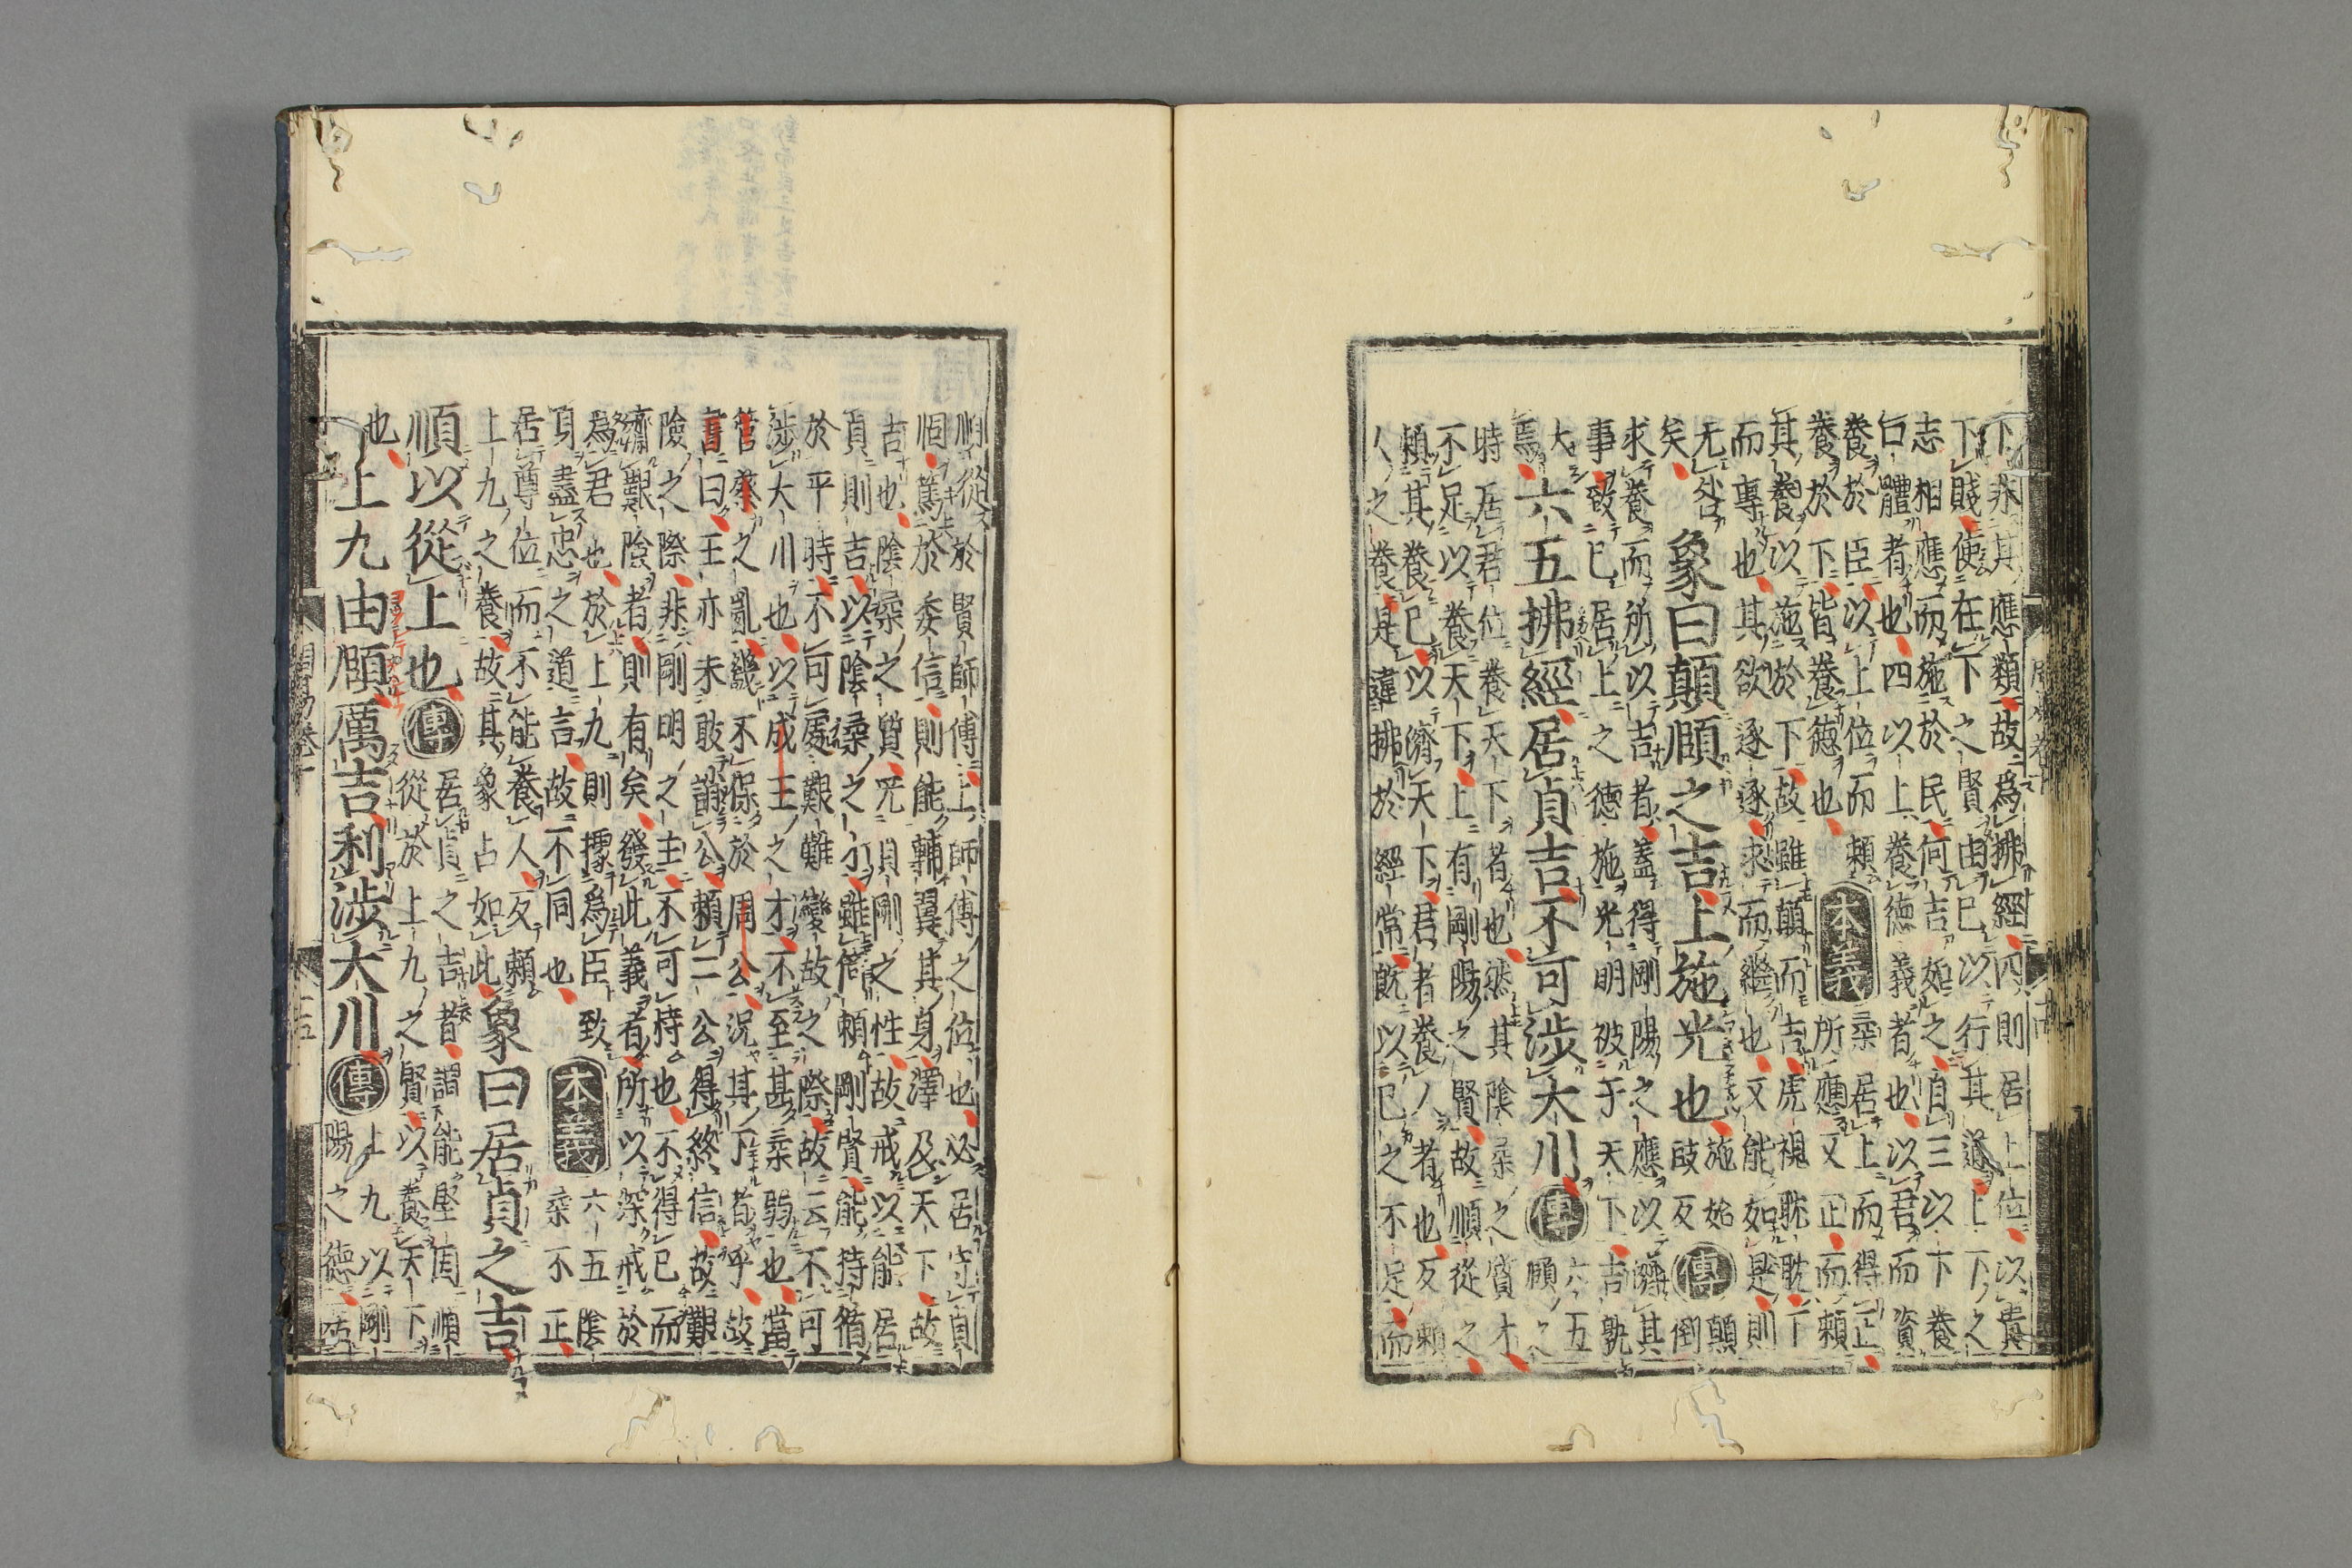 下求其應類故爲拂經四則居上位以貴
下賤使在下之賢由己以行其道上下之
志相應而施於民何吉如之自三以下養
口體者也四以上養德義者也以君而資
養於臣以上位而頼
養於下皆養德也
本義
柔居上而得正
所應又正而頼
其養以施於下故雖顛而吉虎視眈眈下
而專也其欲逐逐求而繼也又能如是則
无咎
矣
象曰顛頤之吉上施光也
施始
豉反
傳
顛
倒
求養而所以吉者蓋得剛陽之應以濟其
事致己居上之德施光明被于天下吉孰
大
焉
六五拂經居貞吉不可涉大川
傳
六五
頤之
時居君位養天下者也然其陰柔之質才
不足以養天下上有剛陽之賢故順從之
頼其養己以濟天下君者養人者也反頼
人之養是違拂於經常既以己之不足而
順從於賢師傅上師傅之位也必居守貞
固篤於委信則能輔翼其身澤及天下故
吉也陰柔之質无貞剛之性故戒以能居
貞則吉以陰柔之才雖倚頼剛賢能持循
於平時不可處艱難變故之際故云不可
涉大川也以成王之才不至甚柔弱也當
管蔡之亂幾不保於周公況其下者乎故
書曰王亦未敢誚公頼二公得終信故艱
險之際非剛明之主不可恃也不得已而
濟艱險者則有矣發此義者所以深戒於
爲君也於上九則據爲臣致
身盡忠之道言故不同也
本義
六五陰
柔不正
居尊位而不能養人反頼
上九之養故其象占如此
象曰居貞之吉
順以從上也
傳
居貞之吉者謂能堅固順
從於上九之賢以養天下
也
上九由頤厲吉利涉大川
傳
上九以剛
陽之德居